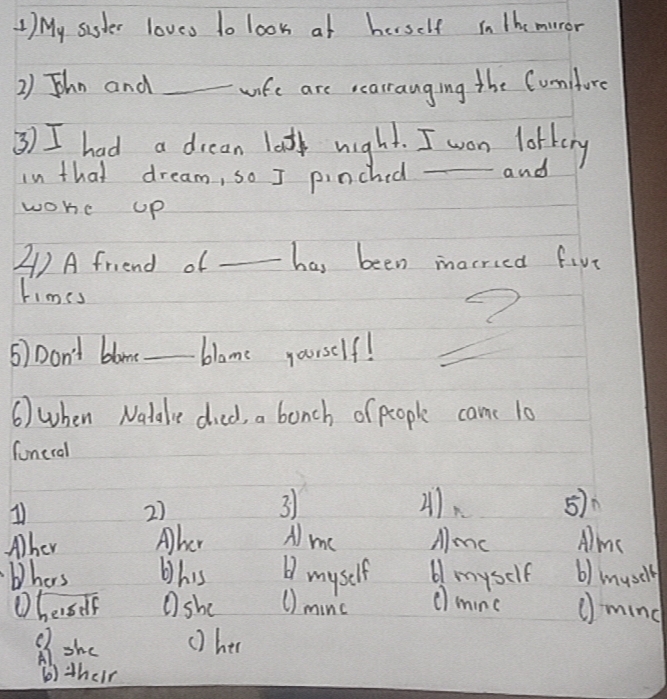 1) My sister loves to look at herself in the mirror
2) John and ___ wife are rearranging the furniture
3) I had a dream last night. I won lottery
in that dream, so I pinched ___ and
woke up
4) A friend of ___ has been married five
times
?
5) Don't blame ___ blame yourself!
6) When Natalie died, a bunch of people came to
funeral
1) 2) 3) 4) 5)
A) her A) her A) me A) me A) me
b) hers b) his b) myself b) myself b) myself
c) herself c) she c) mine c) mine c) mine
c) she c) her
A)
b) their